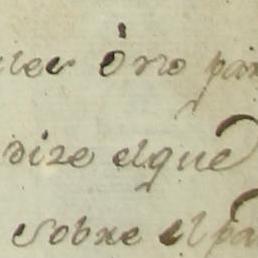 ó no
dize elque
sobre el pa